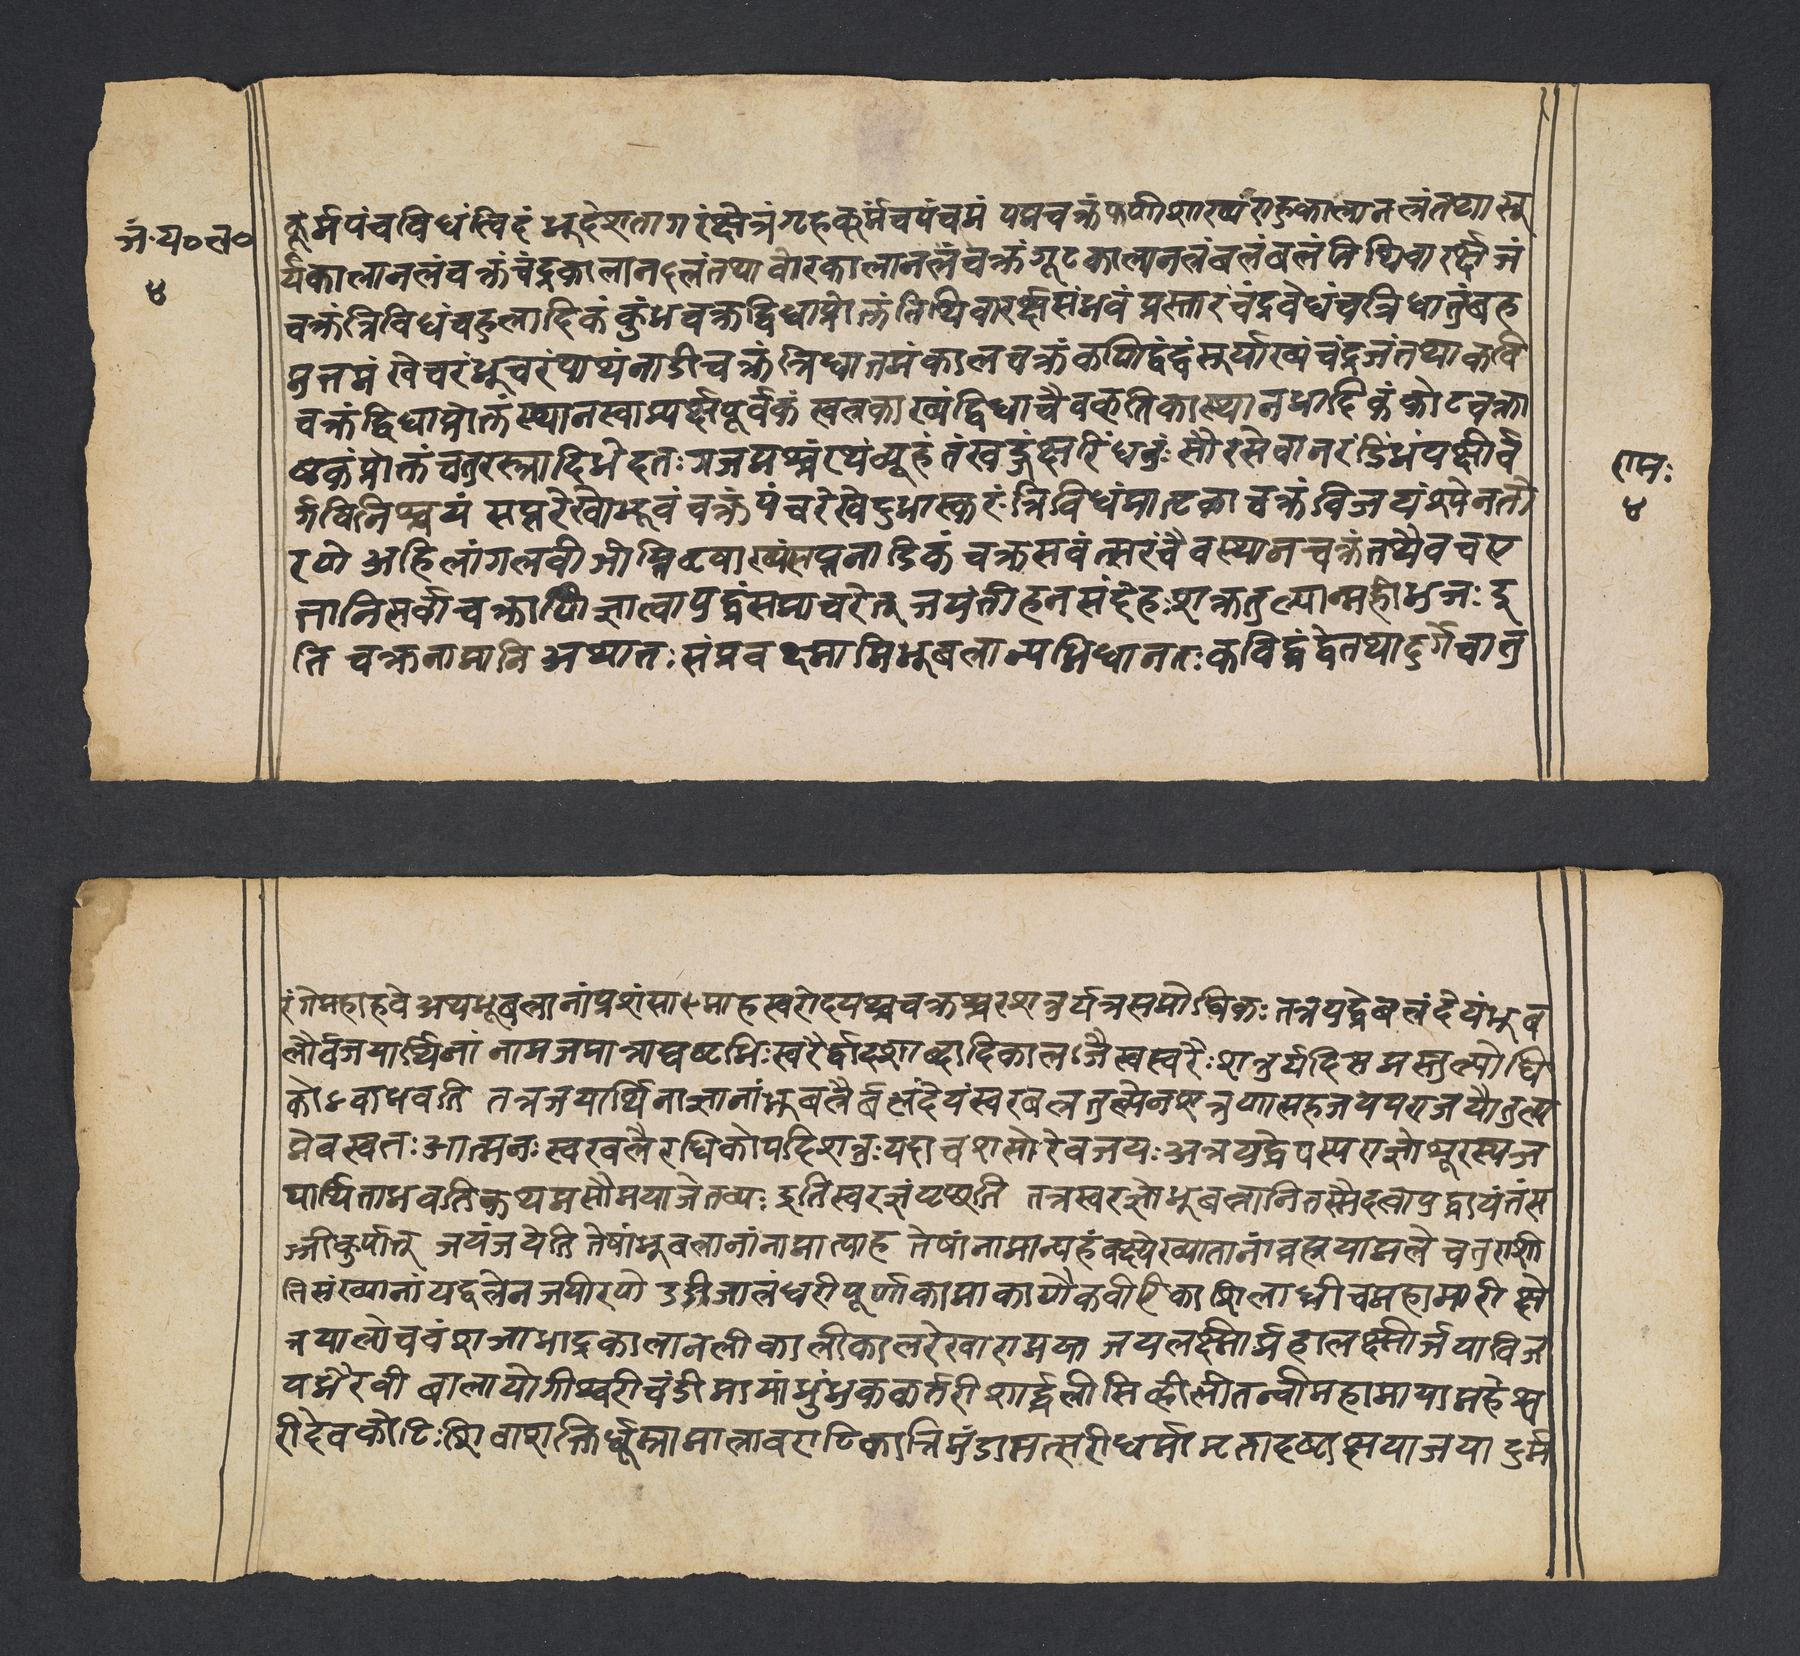 जं॰य॰ल॰
४
कूर्मपंचविधंत्विदं भूदेशतागरंक्षेत्रंगृहकूर्मंचपंचमं पद्मचक्रंफणीशाख्यंराहुकालानलंतथा सू
र्यकालानलंचक्रंचंद्रकालानलंतथा घोरकालानलंचक्रंगूढकालानलंबलंबलंतिथिवारर्क्षजं
चक्रंत्रिविधंचहलादिकं कुंभचक्रद्विधाप्रोक्तंतिथिवारर्क्षसंभवं प्रस्तारंचंद्रवेधंचत्रिधातुंबह
मुत्तमं खेचरंभूचरंपाथंनाडीचक्रंत्रिधातमंकालचक्रंकपिद्वंद्वंसूर्याख्यंचंद्रजंतथाकवि
चक्रंद्विधाप्रोक्तंस्थानस्वाम्यर्क्षपूर्वकं खलकाख्यंद्विधाचैवकृतिकास्थानभादिकंकोटचक्रा
ष्टकंप्रोक्तंचतुरस्त्रादिभेदतःगजमश्वंरथंव्यूहंतंखड्गंक्षुरिंधनुःसौरसेवानरंडिंभंपक्षीर्व
र्गविनिश्चयं सप्तरेखोद्भवंचक्रंपंचरेखेंदुभास्करंत्रिविधंमातृकाचक्रंविजयंश्येनतो
रणे अहिलांगलबीजोप्तिवृषाख्यंसप्तनाडिकंचक्रसवंत्सरंचैवस्थानचक्रंतथैवचए
तानिसर्वाचक्राणिज्ञात्वायुद्धंसमाचरेत् जयंतीहनसंदेहःशक्रतुल्यान्महीभुजःइ
ति चक्रनामानि अथातःसंप्रवक्ष्यामिभूबलान्यभिधानतःकविद्धंद्वेतथादुर्गेचातु
रामः
४
रंगेमहाहवे अथभूबलानांप्रशंसाऽमाहस्वरोदयश्चचक्रश्चरशत्रुर्यत्रसमोधिकःतत्रयुद्धेबलंदेयंभूब
लौर्वजयार्थिनां नामजमात्राद्यष्टभिःस्वरैर्द्वादशाब्दादिकालजैस्वस्वरैःशत्रुर्यदिसमस्तुल्योधि
कोऽवाभवति तत्रजयार्थिनाज्ञानांभूबलैर्बलंदेयंस्वरबलतुल्येनशत्रुणासहजयपराजयौतुल्य
मेवस्वतःआत्मनःस्वरबलैरधिकोयदिशत्रुःयदाचशत्रोरेवजयःअत्रयुद्धेयस्यराज्ञोभूरस्यज
यार्थिताभवतिकथमसौमयाजेतव्यःइतिस्वरज्ञंपृच्छति तत्रस्वरज्ञोभूबलानितस्मैदत्वायुद्धायंतंस
ज्जीकुर्यात् जयंजयेति तेषांभूबलानांनामान्याह तेषांनामान्यहंवक्ष्येख्यातानांब्रह्मयामले चतुराशी
तिसंख्यानांयद्बलेनजयीरणे उड्डीजालंधरीपूर्णाकामाकाचौकवीरिका शिलाघ्रीचमहामारी क्षे
त्रपालीचवंशजाभाद्रकालानलीकालीकालरेखारामया जयलक्ष्मीर्महालक्ष्मीर्जयाविज
यभैरवी बालायोगीश्वरीचंडीमायांभुंभुककर्त्तरीशार्द्दलीसिंहीलीतन्वीमहामायामहेश्व
रीदेवकोटिःशिवाशक्तिर्धूम्रामालावराटिकात्रिमुंडामत्सरीधर्मामृताहृष्टाक्षयाजया दुर्म